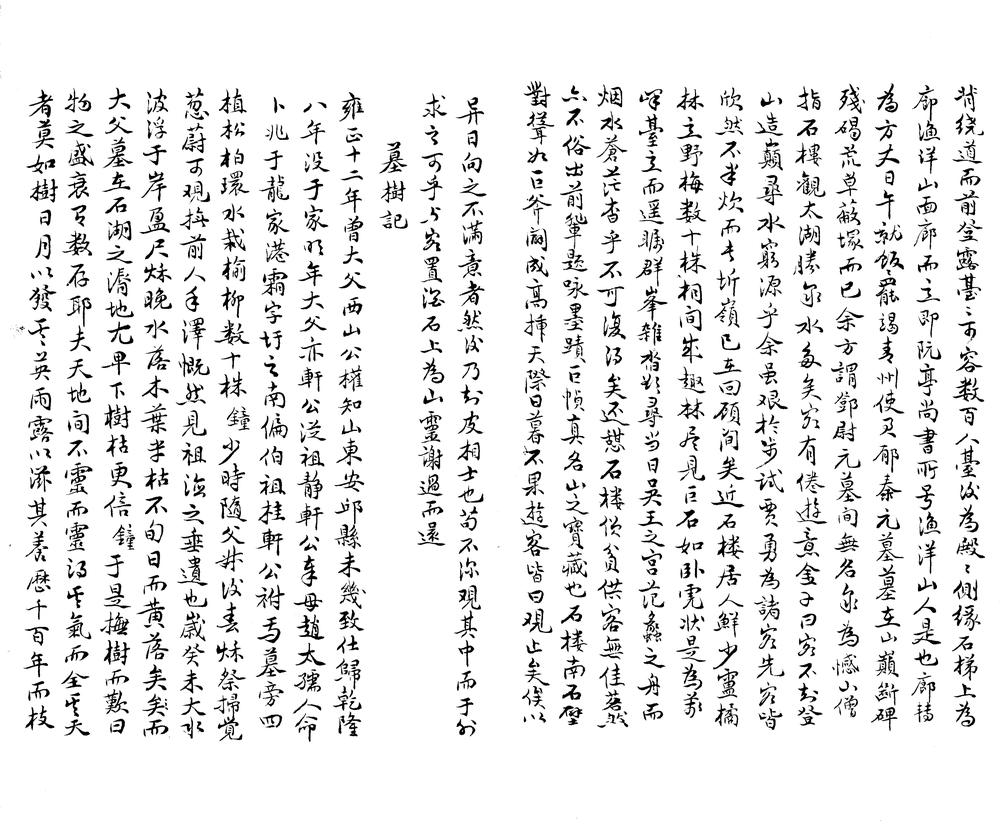 背繞道而前登露臺臺可容數百人臺後為殿殿側緣石梯上為
廊漁洋山面廊而立即阮亭尚書所号漁洋山人是也廊轉
為方丈日午就飯罷謁青州使君郁泰元墓墓在山巔斷碑
殘碣荒草蔽塚而已余方謂鄧尉元墓間無名泉為憾山僧
指石樓觀太湖勝泉水多矣客有倦遊意金子曰客不去登
山造巔尋水窮源乎余虽艰於步試賈勇為諸客先客皆
欣然不半炊而长圻嶺已在回顧間矣近石楼居人鮮少靈橘
林立野梅数十株相間成趣林尽見巨石如卧虎状是為萬
峰臺立而遥矚群峯雜沓欲尋当日吳王之宮范蠡之舟而
烟水蒼茫杳乎不可復得矣还憩石楼僧貧供客無佳茗然
亦不俗出前輩題咏墨蹟巨幀真名山之寶藏也石楼南石壁
對聳如巨斧闢成高插天際日暮不果遊客皆曰观止矣俟以
异日向之不滿意者然後乃知皮相士也苟不深观其中而于外
求之可乎与客置酒石上為山靈謝過而還
墓樹記
雍正十二年曾大父西山公權知山東安邱縣未幾致仕歸乾隆
八年没于家明年大父亦軒公從祖静軒公奉母趙太孺人命
卜兆于龍家港霜字圩之南偏伯祖桂軒公祔焉墓旁四
植松柏環水栽榆柳数十株鐘少時隨父叔後春秋祭掃覺
葱蔚可观撫前人手澤慨然見祖德之垂遺也歲癸未大水
波浮于岸盈尺秋晚水落木葉半枯不旬日而黄落矣矣而
大父墓在石湖之濱地尤卑下樹枯更倍鐘于是撫樹而歎曰
物之盛衰有数存耶夫天地間不靈而靈得其氣而全其天
者莫如樹日月以發其英雨露以滋其養歷千百年而枝